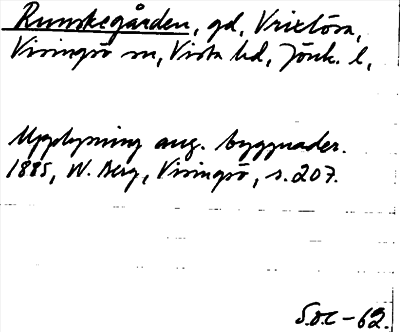 Runskegården, gd, Vrixlösa,
Visingsö sn, Vista hd, Jönk. l,
Upplysning ang. byggnader.
1885, W. Berg, Visingsö, s. 207.
S.O.C -62.